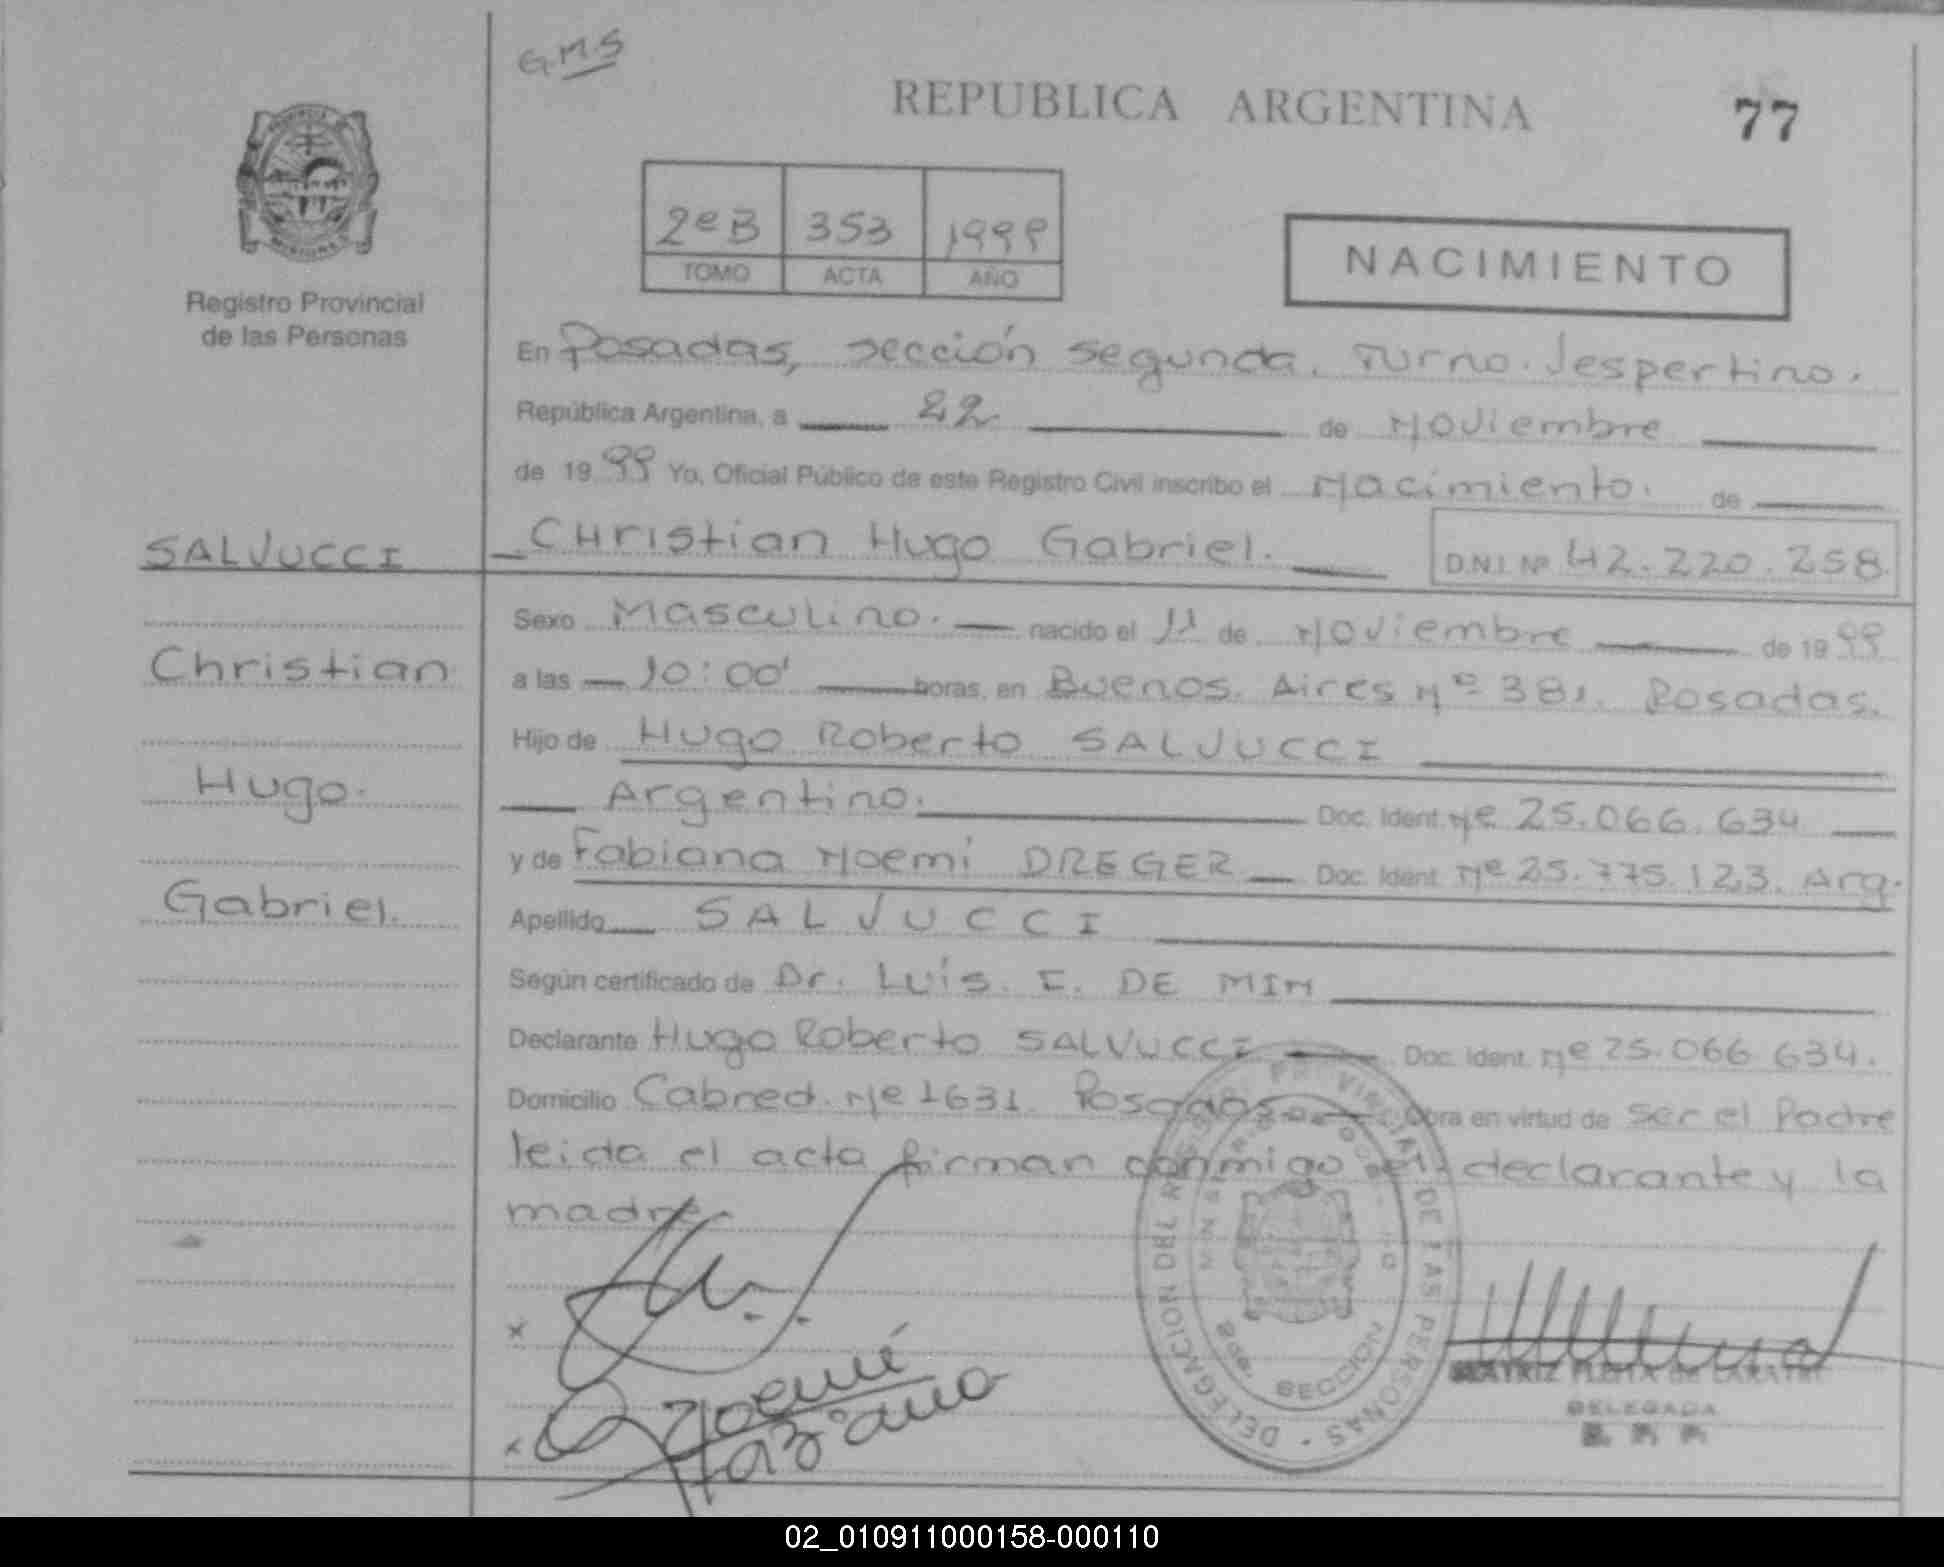 G.M.S
REPUBLICA ARGENTINA
77
2ºB 353 1999
TOMO ACTA AÑO
NACIMIENTO
Registro Provincial
de las Personas
En Posadas, sección segunda. Turno. Vespertino.
República Argentina, a 22 de Noviembre
de 1999 Yo, Oficial Público de este Registro Civil inscribo el Nacimiento. de
SALVUCCI Christian Hugo Gabriel. D.N.I. Nº 42.220.258
Sexo Masculino. nacido el 11 de Noviembre de 1999
Christian a las 10:00' horas, en Buenos Aires Nº 381. Posadas.
Hijo de Hugo Roberto SALVUCCI
Hugo. Argentino. Doc. Ident. Nº 25.066.634
y de Fabiana Noemi DREGER Doc. Ident. Nº 25.775.123. Arg.
Gabriel. Apellido SALVUCCI
Según certificado de Dr. Luis. I. DE MIN
Declarante Hugo Roberto SALVUCCI Doc. Ident. Nº 25.066.634.
Domicilio Cabred. Nº 1631 Posadas Obra en virtud de ser el Padre
leida el acta firman conmigo el declarante y la
madre.
DELEGACION DEL REGISTRO PROVINCIAL DE LAS PERSONAS
SECCION
x
x Noemí
Fabiana
BEATRIZ
DELEGADA
02_010911000158-000110